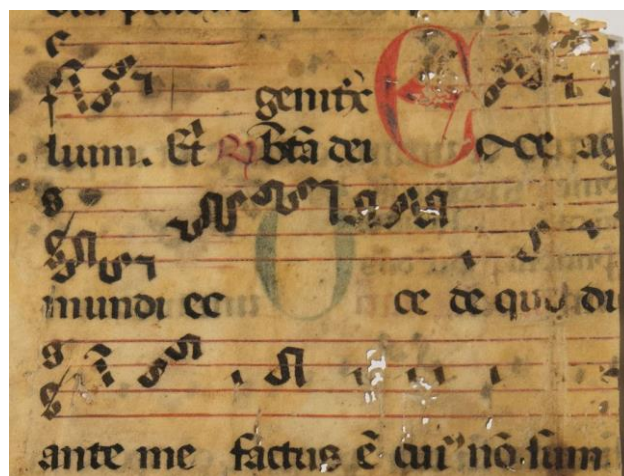 genitx
luum. Et btā dei E c-ce ag
mundi ec ce de quo di
ante me factus ē cui nō sum